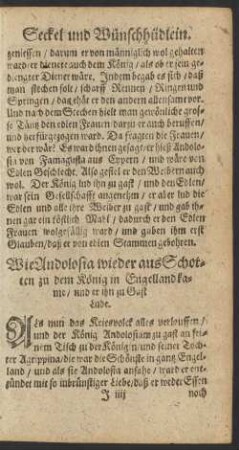 Seckel und Wünschhüdlein.
geniessen / darum er von männiglich wol gehalten
ward / er dienete auch dem König / als ob er sein ge-
dingter Diener wäre. Indem begab es sich / daß
man stechen solt / scharff Rennen / Ringen und
Springen / das thät er den andern allensamt vor.
Und nach dem Stechen hielt man gewönlich gros-
se Tänz den edlen Frauen darzu er auch beruffen /
und herfür gezogen ward. Da fragten die Frauen /
wer der wär? Es ward ihnen gesagt / er hieß Andolo-
sia von Famagusta aus Cypern / und wäre von
Edlen Geschlecht. Also gefiel er den Weibern auch
wol. Der König lud ihn zu gast / und den Edlen
war sein Gesellschafft angenehm / er aber lud die
Edlen und alle ihre Weiber zu gast / und gab ih-
nen gar ein köstlich Mahl / dadurch er den Edlen
Frauen wolgefällig ward / und gaben ihm erst
Glauben / daß er von edlen Stammen gebohren.
Wie Andolosia wieder aus Schot-
ten zu dem König in Engelland ka-
me / und er ihn zu Gast
lude.
Als nun das Kriesvolck alles verlouffen /
und der König Andolosiam zu gast an sei-
nem Tisch zu der Königin / und seiner Toch-
ter Agrippina / die war die Schönste in gantz Engel-
land / und als sie Andolosia ansahe / ward er ent-
zündet mit so inbrünstiger Liebe / daß er weder Essen
J iij noch